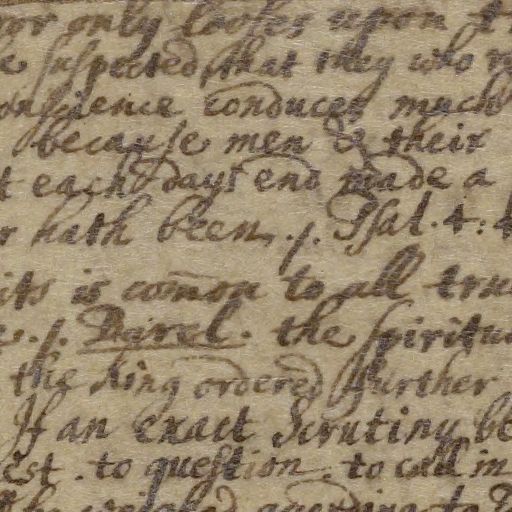 or only looks upon
suspected, that they who
conscience conduces much
because men & their
each days end made a
hath been ./. Psal. 4: 4
its is com̄on to all true
./. Darel. the spiritu
the King ordered further
If an exact Scrutiny be
est . to question . to call in
according to